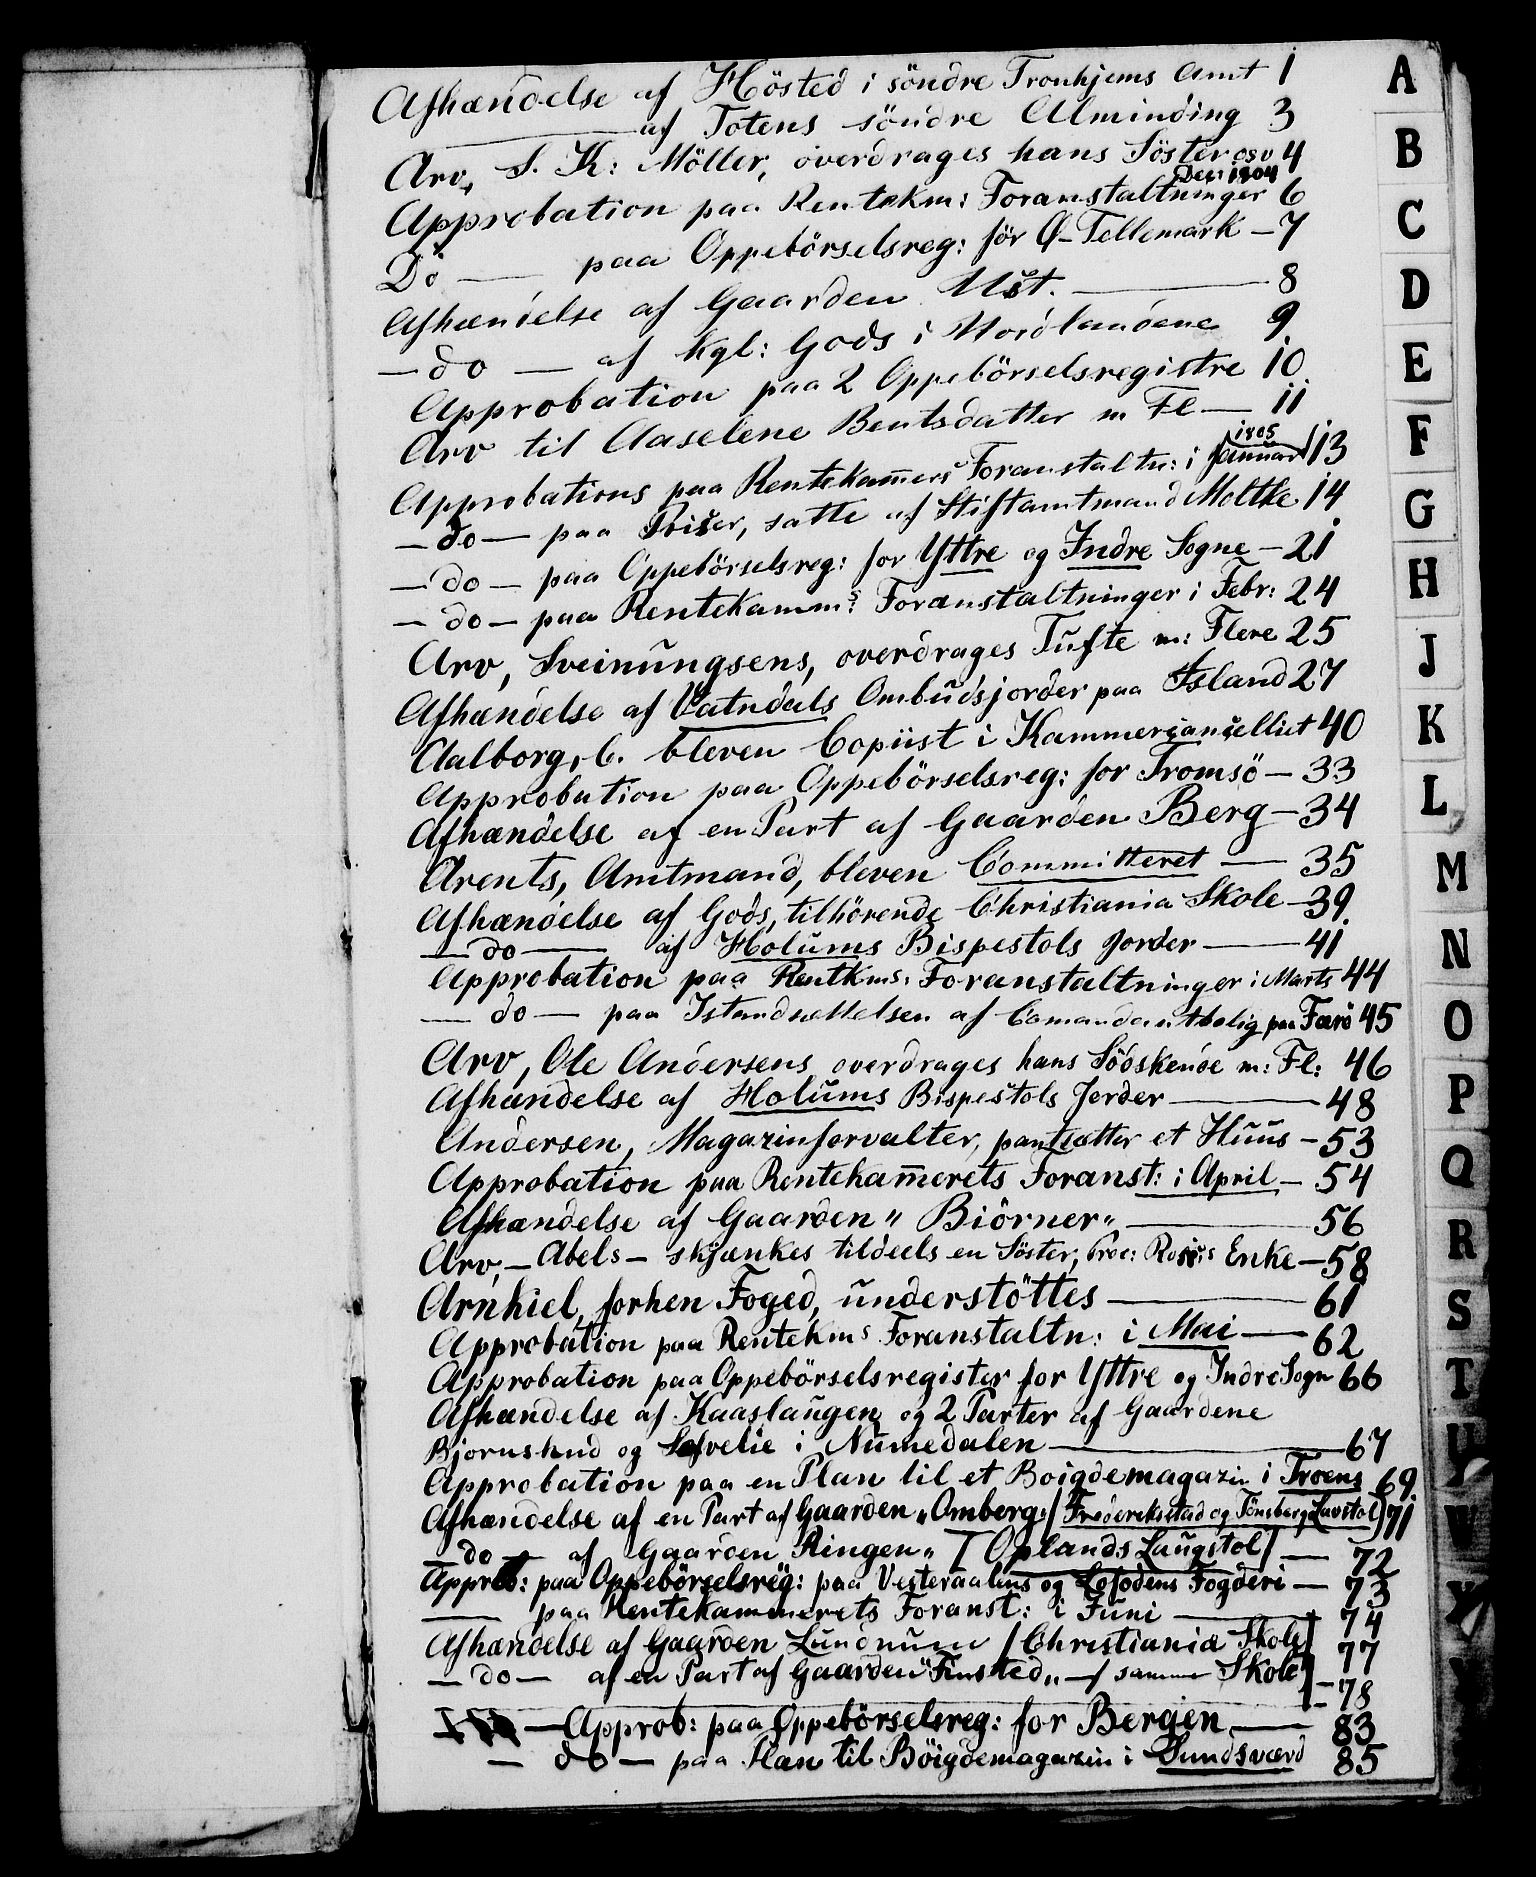 Afhændelse af Hösted i söndre Tronhjems Amt 1
——— af Totens söndre Alminding 3
Arv, S. K: Möller, overdrages hans Söster osv 4
Approbation paa Rentekm: Foranstaltninger Dec: 1804 6
Do — paa Oppebörselsreg: för Ø-Tellemark — 7
Afhændelse af Gaarden Ust. ——— 8
— do — af kgl: Gods i Nordlandene 9
Approbation paa 2 Oppebörselsregistre 10
Arv til Aaselene Bentsdatter m Fl — 11
Approbations paa Rentekamers Foranstaltn: i Januar 1805 13
— do — paa Priser, satte af Stiftamtmand Moltke 14
— do — paa Oppebörselsreg: for Yttre og Indre Sogne — 21
— do — paa Rentekamms: Foranstaltninger i Febr: 24
Arv, Sveinungsens, overdrages Tufte m: Flere 25
Afhændelse af Vatndals Ombudsjorder paa Island 27
Aalborg, C. bleven Copiist i Kammercancelliet 40
Approbation paa Oppebörselsreg: for Tromsö — 33
Afhændelse af en Part af Gaarden Berg — 34
Arents, Amtmand, bleven Committeret — 35
Afhændelse af Gods, tilhörende Christiania Skole — 39
— do — af Holums Bispestols Jorder — 41
Approbation paa Rentkms: Foranstaltninger i Marts 44
— do — paa Istandsettelsen af Comandantbolig paa Færö 45
Arv, Ole Andersens overdrages hans Södskende m: Fl: 46
Afhændelse af Holums Bispestols Jorder — 48
Andersen, Magazinforvalter, pantsætter et Huus — 53
Approbation paa Rentekamerets Foranst: i April — 54
Afhændelse af Gaarden „ Biörner „ — 56
Arv, — Abels — skjænkes tildeels en Söster, Enke — 58
Arnkiel, forhen Foged, understöttes — 61
Approbation paa Rentekms Foranstaltn: i Mai — 62
Approbation paa Oppebörselsregister for Yttre og Indre Sogn 66
Afhændelse af Kaaslaugen og 2 Parter af Gaardene
Bjornshud og i Numedalen — 67
Approbation paa en Plan til et Boigdemagazin i Troens 69
Afhændelse af en Part af Gaarden „Omberg„ [Frederikstad og Tönsberg Lavstol] 71
— do — af Gaarden Ringen „ [Oplands Laugstol] — 72
Approb: paa Oppebörselsreg: paa Vesteraalens og Lofodens Fogderi — 73
—— paa Rentekammerets Foranst: i Juni — 74
Afhændelse af Gaarden Lundnum [Christiania Skole] 77
— do — af en Part af Gaarden „Finsted„ — [samme Skole] — 78
— Approb: paa Oppebörselsreg: for Bergen — 83
— do — paa Plan til Böigdemagazin i Sundsværd 85
A
B
C
D
E
F
G
H
J
K
L
M
N
O
P
Q
R
S
T
U
W
X